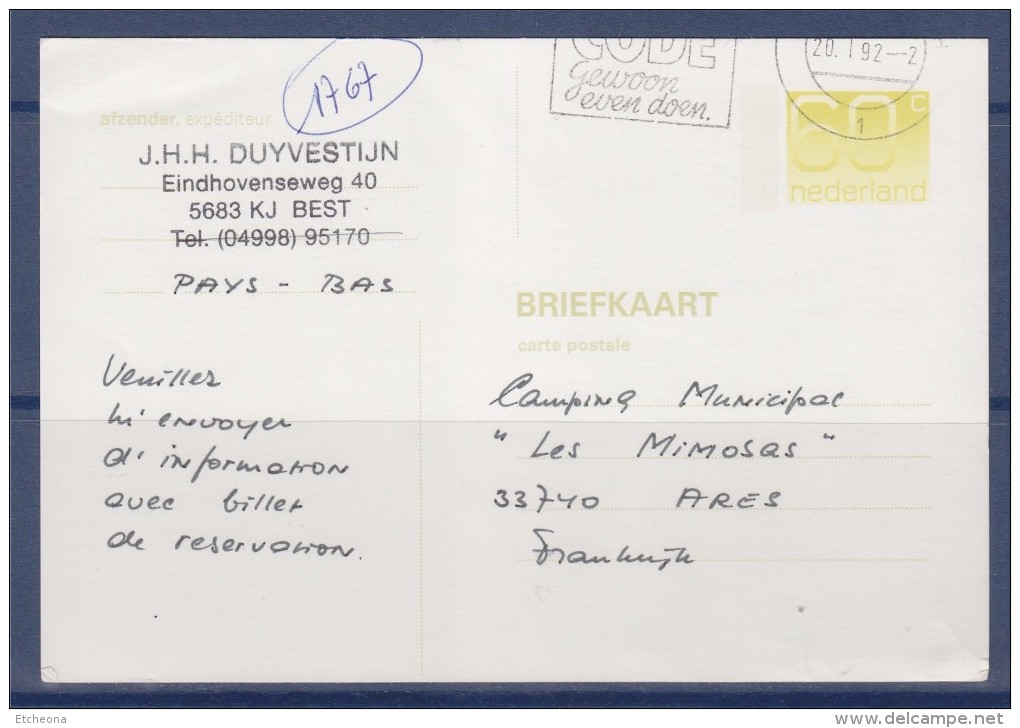 CODE
Gewoon
even doen.
20. I 92--2
1
60 C
nederland
1767
afzender, expéditeur
J.H.H. DUYVESTIJN
Eindhovenseweg 40
5683 KJ BEST
Tel. (04998) 95170
PAYS - BAS
BRIEFKAART
carte postale
Veuillez
m'envoyer
d'information
avec billet
de reservation.
Camping Municipal
"Les Mimosas"
33740 ARES
Frankrijk
Etcheona
www.delcampe.net